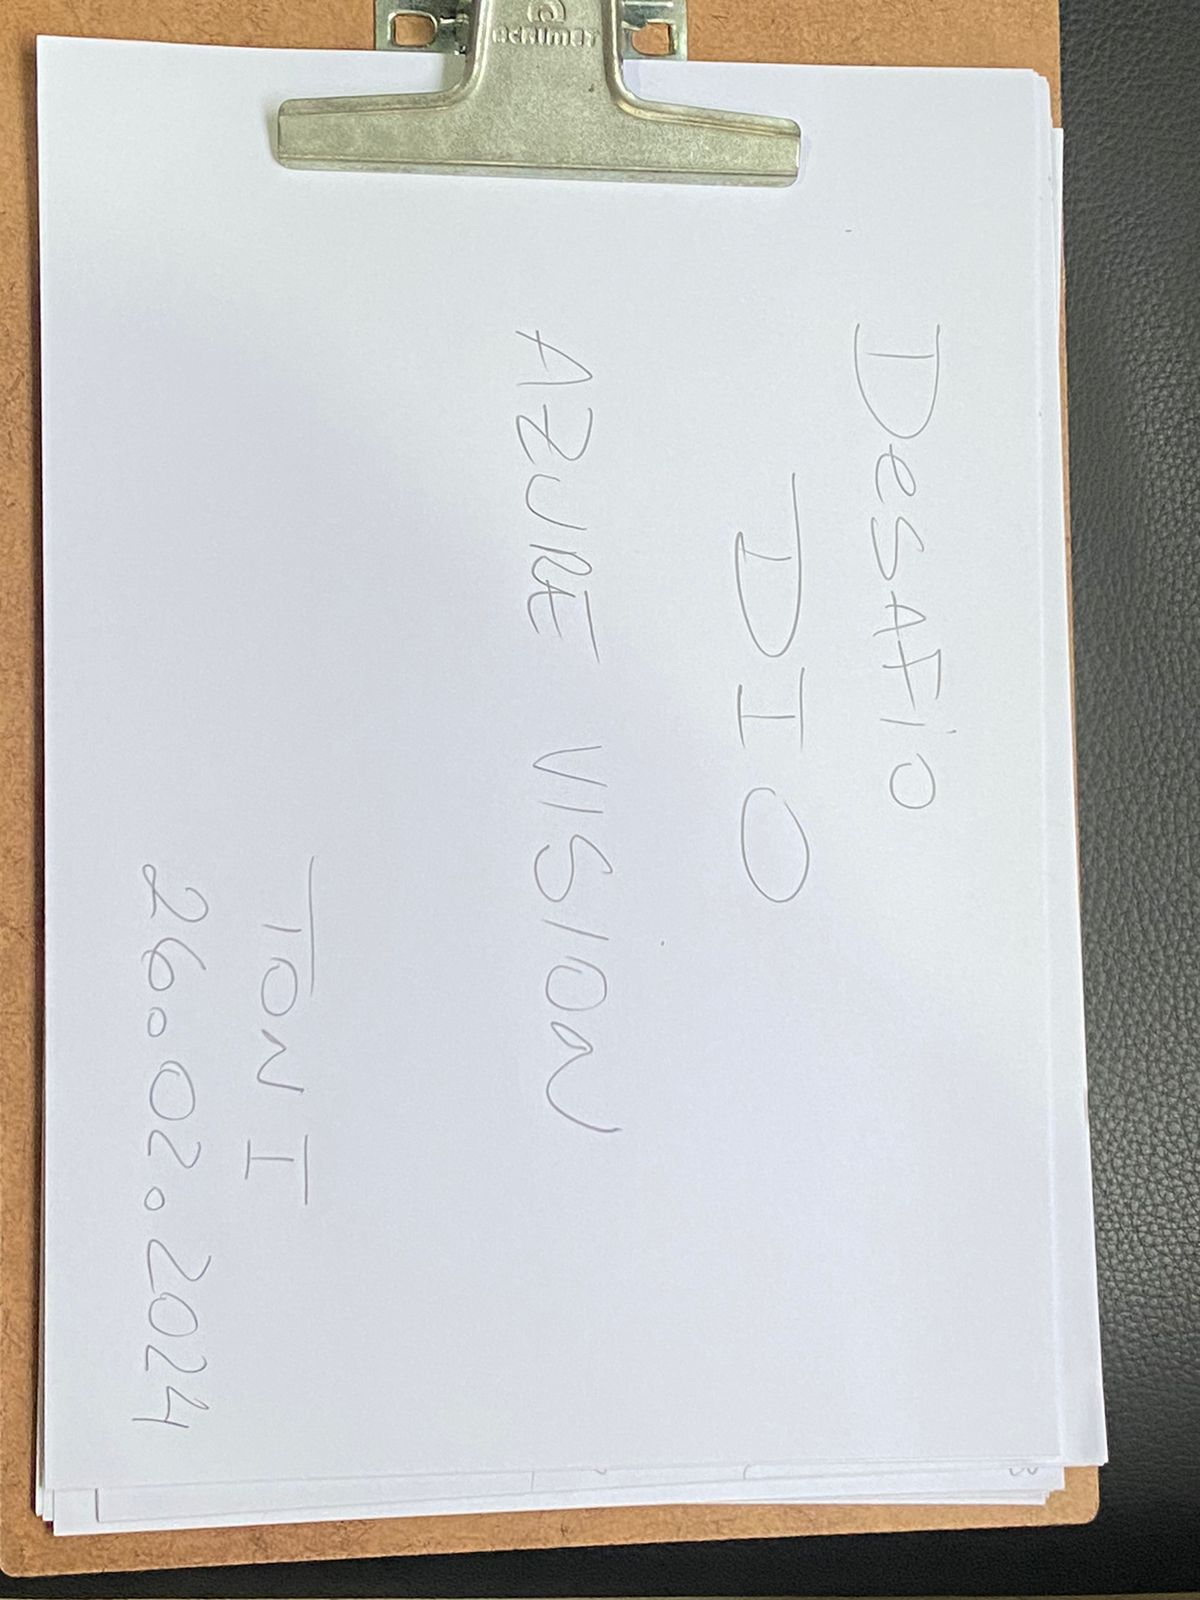 ACRIMET
DesAFiO
DIO
AZURE VISION
TONI
26.02.2024